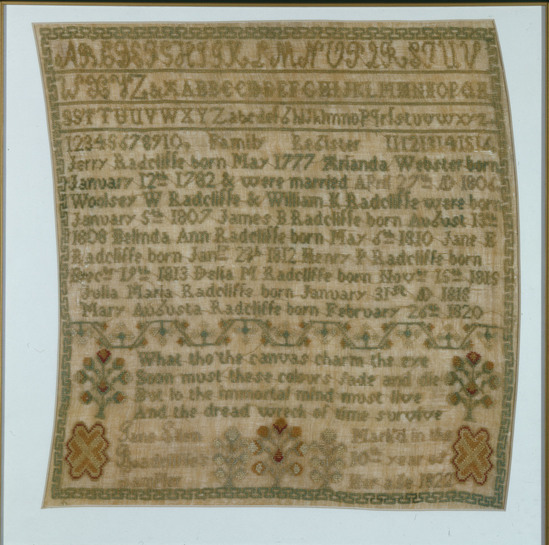 ABCDEFGHIJKLMNOPQRSTUV
WXYZ&ÆABCCDDEFGHIJKLMNNOPQR
SSTTUUVWXYZabcdefghijklmnopqrsstuvwxyz
12345678910, Family Register 111213141516
Jerry Radcliffe born May 1777 Arianda Webster born
January 12th 1782 & were married April 27th AD 1806
Woolsey W Radcliffe & William K Radcliffe ware born
January 5th 1807 James B Radcliffe born August 13th
1808 Belinda Ann Radcliffe born May 6th 1810 Jane E
Radcliffe born Jan 1812 Henry P Radcliffe born
19th 1813 Delia M Radcliffe born Novm 15th 1815
Julia Maria Radcliffe born January 31st AD 1818
Mary Augusta Radcliffe born February 26th 1820
What tho' the canvas charm the eye
Soon must these colours fade and die
But to the immortal mind must live
And the dread wreck of time survive
Jane Mark'd in the
Radcliffe's 10th year of
Her age 1822